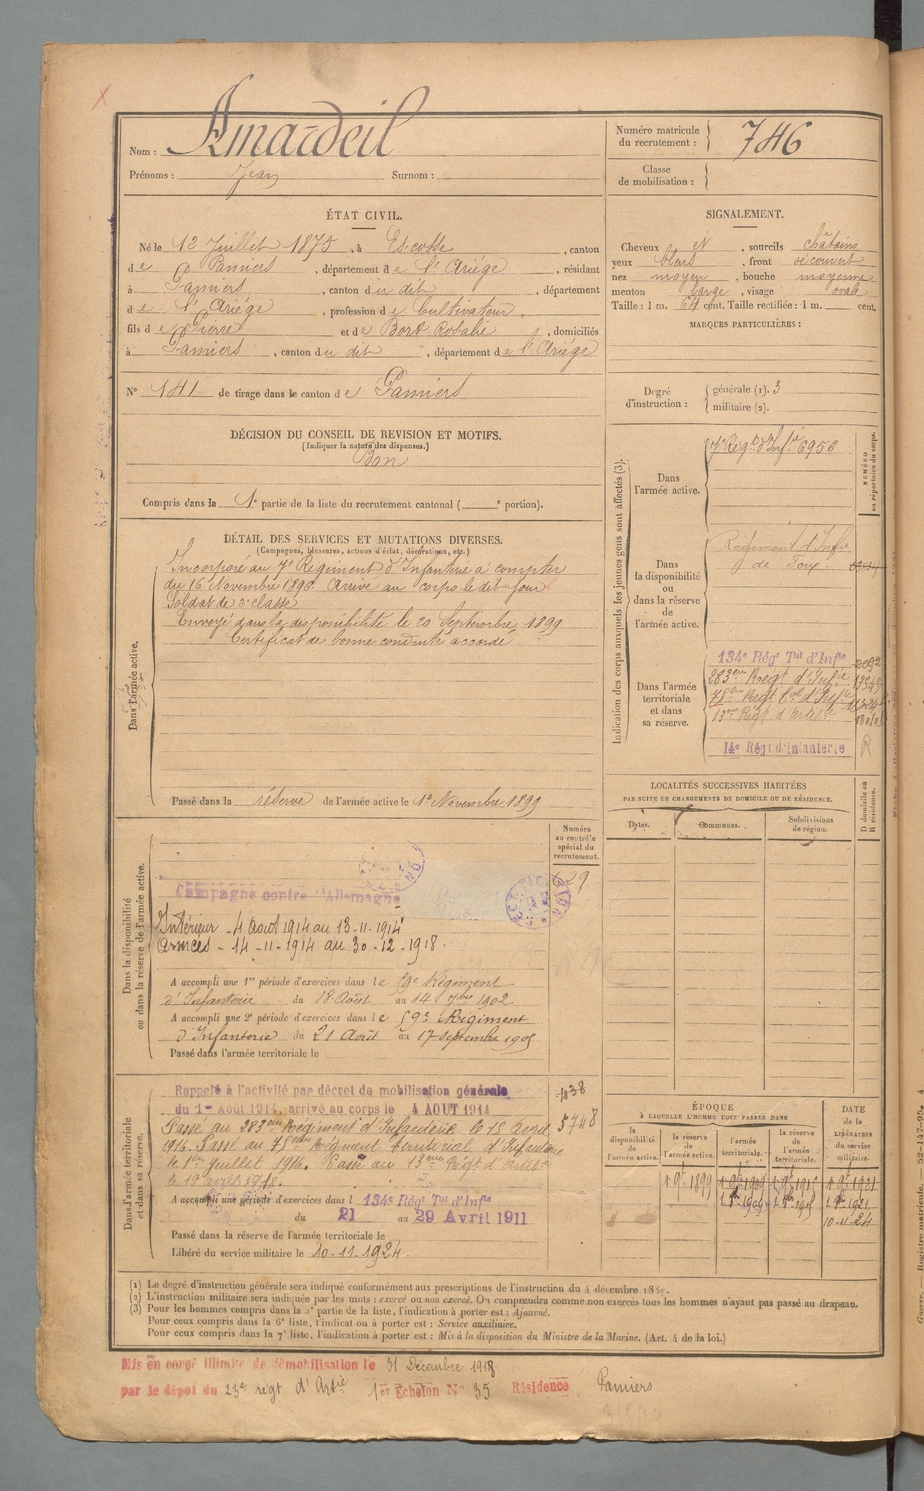 Nom : Amardeil
Prénoms : Jean Surnom :
Numéro matricule du recrutement : 746
Classe de mobilisation :
ÉTAT CIVIL.
Né le 12 Juillet 1875, à Escosse, canton
de Pamiers, département de l'Ariége, résidant
à Pamiers, canton du dit, département
de l'Ariége, profession de Cultivateur,
fils de Pierre et de Bort Rosalie, domiciliés
à Pamiers, canton du dit, département de l'Ariége
N° 141 de tirage dans le canton de Pamiers
SIGNALEMENT.
Cheveux et, sourcils chatains
yeux bleus, front découvert
nez moyen, bouche moyenne
menton large, visage ovale
Taille : 1 m. 64 cent. Taille rectifiée : 1 m. cent.
MARQUES PARTICULIÈRES :
Degré d'instruction : générale (1). 3
militaire (2).
DÉCISION DU CONSEIL DE REVISION ET MOTIFS.
(Indiquer la nature des dispenses.)
Bon
Compris dans la 1e partie de la liste du recrutement cantonal ( e portion).
DÉTAIL DES SERVICES ET MUTATIONS DIVERSES.
(Campagnes, blessures, actions d'éclat, décorations, etc.)
Dans l'armée active.
Incorporé au 7e Régiment d'Infanterie à compter
du 16 Novembre 1896. Arrivé au corps le dit jour
Soldat de 2e classe
Envoyé dans la disponibilité le 20 Septembre 1899
Certificat de bonne conduite accordé
Passé dans la réserve de l'armée active le 1er Novembre 1899
Indication des corps auxquels les jeunes gens sont affectés (3).
NUMÉRO au répertoire du corps.
Dans l'armée active.
7e Régt d'Infie 6956
Dans la disponibilité ou dans la réserve de l'armée active.
Régiment d'Infie
de Foix.
Dans l'armée territoriale et dans sa réserve.
134e Régt Tal d'Infie
283eme Regt d'Infie
75eme Regt Tal d'Infie
13eme Regt d'Artie
14e Régt d'Infanterie R
LOCALITÉS SUCCESSIVES HABITÉES
PAR SUITE DE CHANGEMENTS DE DOMICILE OU DE RÉSIDENCE.
D domicile ou R résidence.
Dates. Communes. Subdivisions de région.
Dans la disponibilité ou dans la réserve de l'armée active.
Numéro au contrôle spécial du recrutement.
Campagne contre l'Allemagne
Intérieur - 4 Août 1914 au 13-11-1914
Armées - 14-11-1914 au 30-12-1918.
A accompli une 1re période d'exercices dans le 59e Régiment
d'Infanterie du 18 Août au 14 7bre 1902
A accompli une 2e période d'exercices dans le 59e Régiment
d'Infanterie du 21 Août au 17 Septembre 1905
Passé dans l'armée territoriale le
Dans l'armée territoriale et dans sa réserve.
Rappelé à l'activité par décret de mobilisation générale 438
du 1er Août 1914, arrivé au corps le 4 AOUT 1914
Passé au 283eme Régiment d'Infanterie le 15 Avril 5748
1916. Passé au 75eme Régiment territorial d'Infanterie
le 1er Juillet 1916. Passé au 13eme Régt d'Artie
A accompli une période d'exercices dans l 134e Régt Tal d'Infie
du 21 au 29 Avril 1911
Passé dans la réserve de l'armée territoriale le
Libéré du service militaire le 10-11-1924.
ÉPOQUE
À LAQUELLE L'HOMME DOIT PASSER DANS
la disponibilité de l'armée active. la réserve de l'armée active. l'armée territoriale. la réserve de l'armée territoriale.
DATE de la LIBÉRATION du service militaire.
1 9bre 1899
10-11-24
(1) Le degré d'instruction générale sera indiqué conformément aux prescriptions de l'instruction du 4 décembre
(2) L'instruction militaire sera indiquée par les mots : exercé ou non exercé. On comprendra comme non exercés tous les hommes n'ayant pas passé au drapeau.
(3) Pour les hommes compris dans la 5e partie de la liste, l'indication à porter est : Ajourné.
Pour ceux compris dans la 6e liste, l'indication à porter est : Service auxiliaire.
Pour ceux compris dans la 7e liste, l'indication à porter est : Mis à la disposition du Ministre de la Marine. (Art. 4 de la loi.)
Mis en congé illimité de démobilisation le 31 Décembre 1918
par le dépot du 23e régt d'Artie 1er Echelon N° 35 Résidence Pamiers